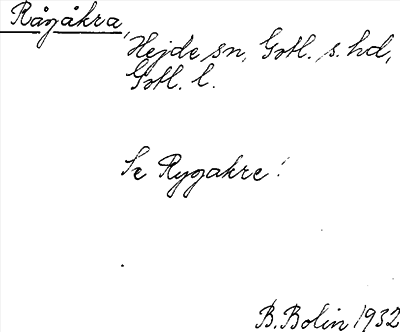 Rågåkra,
Hejde sn, Gotl. s. hd,
Gotl. l.
Se Rygakre!
B. Bolin 1932